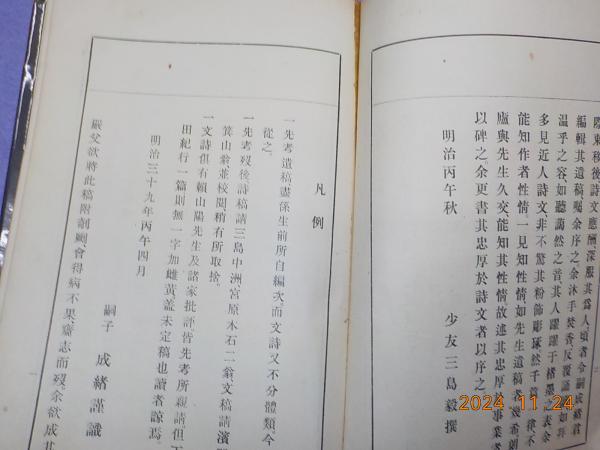 際東移後詩文應酬深服其爲人頃者令嗣成緒君
編輯其遺稿囑余序之余沐手焚香反覆誦
温乎之容如聽藹然之音其人躍躍于楮墨之表余
多見近人詩文非不驚其粉飾彫琢然千篇一律不
能知作者性情一見知性情如先生遺稿者幾希
廬與先生久交能知其性情故述其忠厚於事業者
以碑之余更書其忠厚於詩文者以序之
明治丙午秋
少友三島毅撰
凡例
一先考遺稿盡係生前所自編次而文詩又不分體類今
從之
一先考歿後詩稿請三島中洲宮原木石二翁文稿請濱
箕山翁並校閲稍有所取捨
一文詩倶有賴山陽先生及諸家批評皆先考所親請但
田紀行一篇則無一字加雌黃蓋未定稿也讀者諒焉
明治三十九年丙午四月
嗣子 成緒謹識
嚴父欲將此稿附剞劂會得病不果齎志而歿余欲成其
2024 11 24